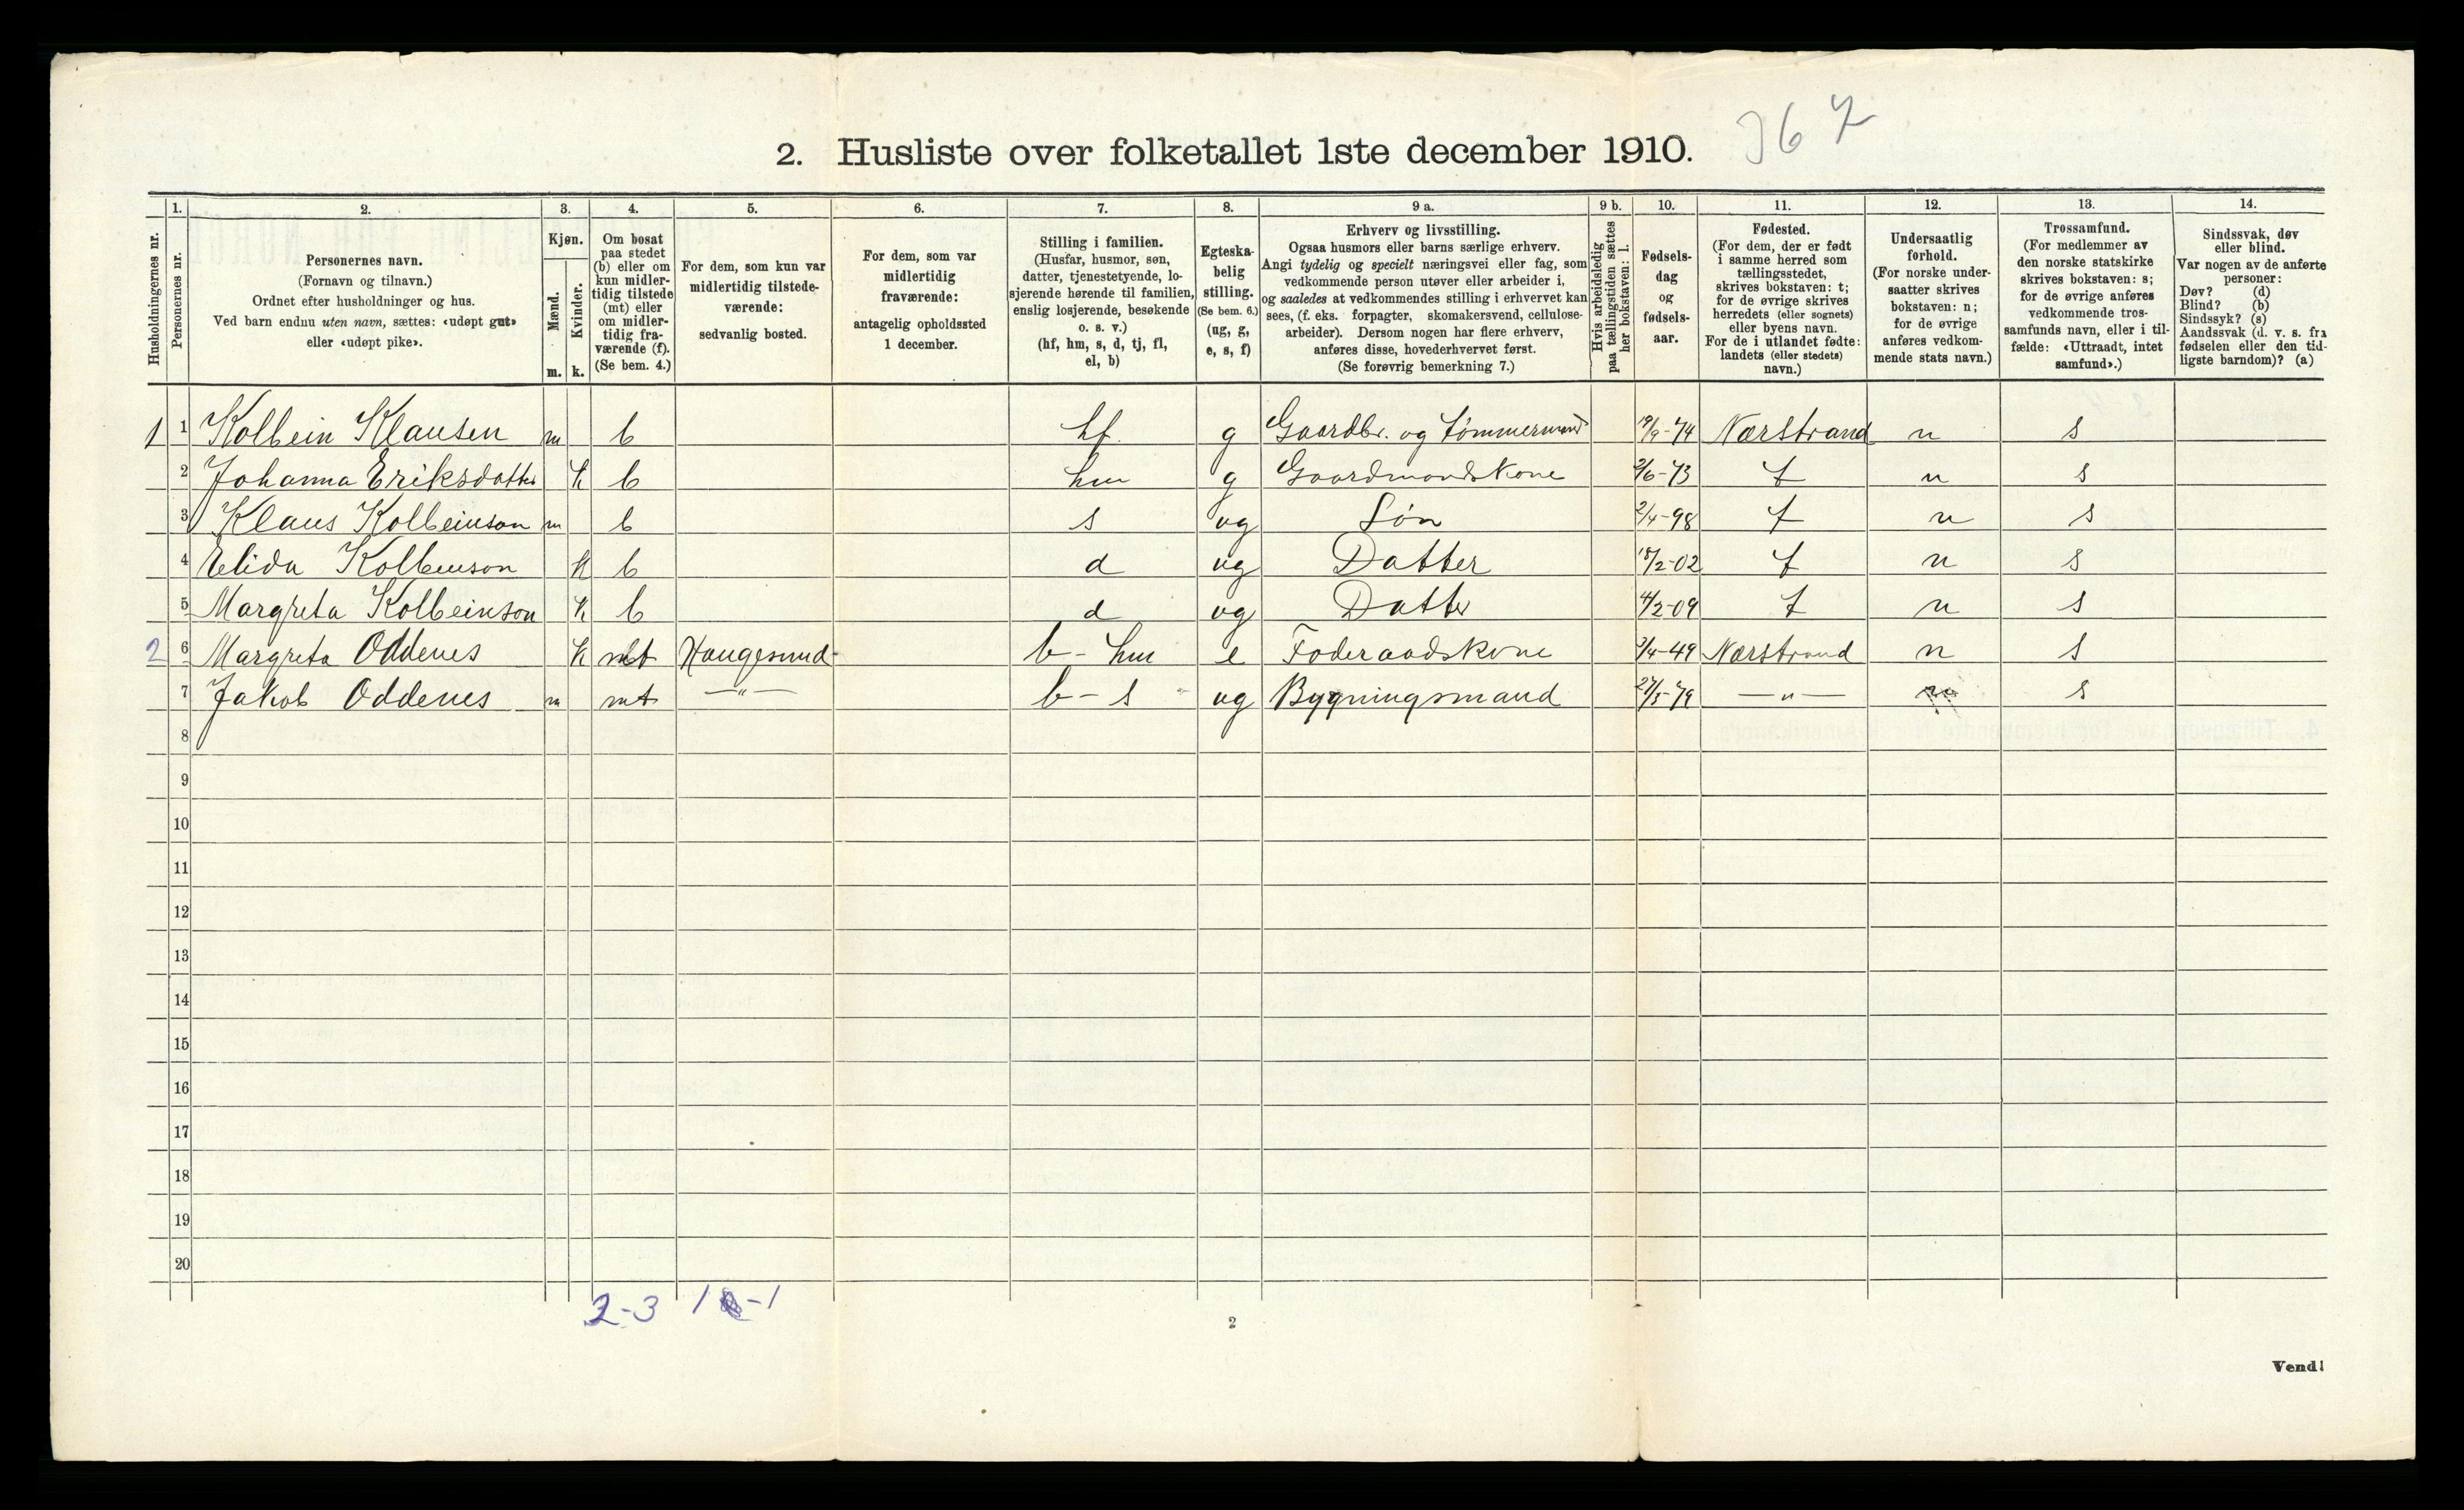 367
2. Husliste over folketallet 1ste december 1910.
Husholdningernes nr.
1. Personernes nr.
2. Personernes navn. (Fornavn og tilnavn.) Ordnet efter husholdninger og hus. Ved barn endnu uten navn, sættes: «udøpt gut» eller «udøpt pike».
3. Kjøn. Mænd. m. Kvinder. k.
4. Om bosat paa stedet (b) eller om kun midlertidig tilstede (mt) eller om midlertidig fraværende (f). (Se bem. 4.)
5. For dem, som kun var midlertidig tilstedeværende: sedvanlig bosted.
6. For dem, som var midlertidig fraværende: antagelig opholdssted 1 december.
7. Stilling i familien. (Husfar, husmor, søn, datter, tjenestetyende, losjerende hørende til familien, enslig losjerende, besøkende o. s. v.) (hf, hm, s, d, tj, fl, el, b)
8. Egteskabelig stilling. (Se bem. 6.) (ug, g, e, s, f)
9 a. Erhverv og livsstilling. Ogsaa husmors eller barns særlige erhverv. Angi tydelig og specielt næringsvei eller fag, som vedkommende person utøver eller arbeider i, og saaledes at vedkommendes stilling i erhvervet kan sees, (f. eks. forpagter, skomakersvend, cellulosearbeider). Dersom nogen har flere erhverv, anføres disse, hovederhvervet først. (Se forøvrig bemerkning 7.)
9 b. Hvis arbeidsledig paa tællingstiden sættes her bokstaven: l.
10. Fødselsdag og fødselsaar.
11. Fødested. (For dem, der er født i samme herred som tællingsstedet, skrives bokstaven: t; for de øvrige skrives herredets (eller sognets) eller byens navn. For de i utlandet fødte: landets (eller stedets) navn.)
12. Undersaatlig forhold. (For norske undersaatter skrives bokstaven: n; for de øvrige anføres vedkommende stats navn.)
13. Trossamfund. (For medlemmer av den norske statskirke skrives bokstaven: s; for de øvrige anføres vedkommende trossamfunds navn, eller i tilfælde: «Uttraadt, intet samfund».)
14. Sindssvak, døv eller blind. Var nogen av de anførte personer: Døv? (d) Blind? (b) Sindssyk? (s) Aandssvak (d. v. s. fra fødselen eller den tidligste barndom)? (a)
1 1 Kolbein Klausen m b hf g Gaardbr. og Tømmermand 19/9-74 Nærstrand n s
2 Johanna Eriksdatter k b hm g Gaardmandskone 2/6-73 t n s
3 Klaus Kolbeinson m b s ug Søn 2/4-98 t n s
4 Elida Kolbeinson k b d ug Datter 18/2-02 t n s
5 Margreta Kolbeinson k b d ug Datter 4/2-09 t n s
2 6 Margreta Oddenes k mt Haugesund b - hm e Foderaadskone 3/4-49 Nærstrand n s
7 Jakob Oddenes m mt —"— b - s ug Bygningsmand 27/5-79 —"— n s
8
9
10
11
12
13
14
15
16
17
18
19
20
2-3 1-1
2
Vend!